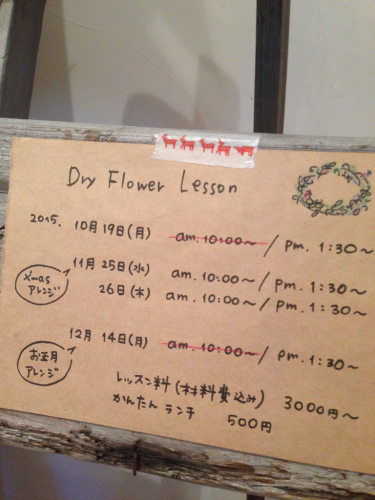 Dry Flower Lesson
2015. 10月19日(月) am. 10:00〜 / pm. 1:30〜
Xmas アレンジ
11月25日(水) am. 10:00〜 / pm. 1:30〜
26日(木) am. 10:00〜 / pm. 1:30〜
12月14日(月) am. 10:00〜 / pm. 1:30〜
お正月 アレンジ
レッスン料(材料費込み) 3000円〜
かんたんランチ 500円